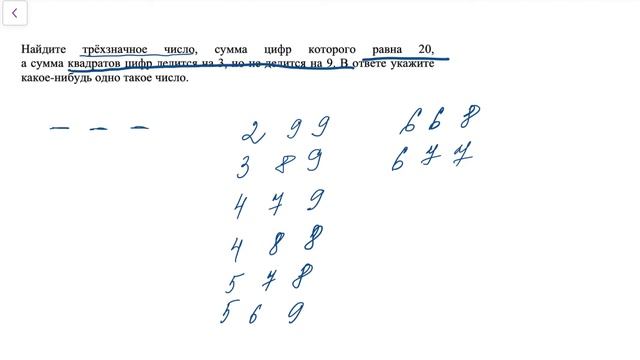 Найдите трёхзначное число, сумма цифр которого равна 20,
а сумма квадратов цифр делится на 3, но не делится на 9. В ответе укажите
какое-нибудь одно такое число.
_ _ _ 2 9 9 6 6 8
3 8 9 6 7 7
4 7 9
4 8 8
5 7 8
5 6 9